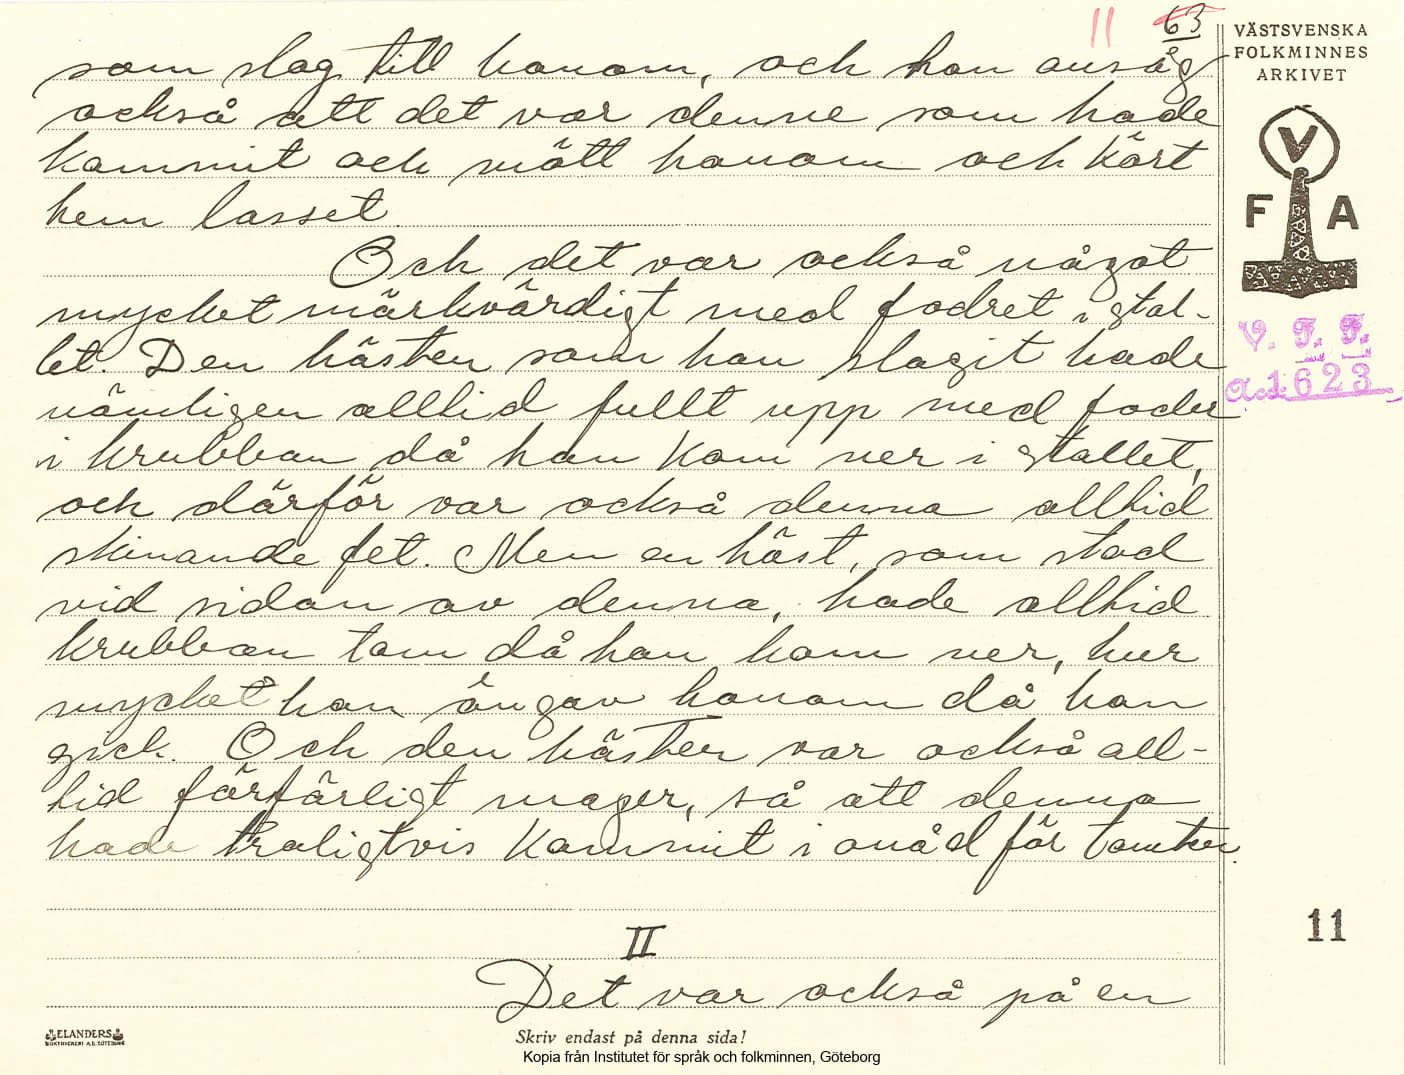 11 63
som slog till honom, och han ansåg
också att det var denne som hade
kommit och mött honom och kört
hem lasset
Och det var också något
mycket märkvärdigt med fodret i stal-
let. Den hästen som han slagit hade
nämligen alltid fullt upp med foder
i krubban då han kom ner i stallet,
och därför var också denna alltid
skinande fet. Men en häst, som stod
vid sidan av denna, hade alltid
krubban tom då han kom ner, hur
mycket han än gav honom då han
gick. Och den hästen var också all-
tid förfärligt mager, så att denna
hade troligtvis kommit i onåd för tomten
II
Det var också på en
VÄSTSVENSKA
FOLKMINNES
ARKIVET
V
F A
V. F. F.
a.1623
11
ELANDERS
BOKTRYCKERI A.B. GÖTEBORG
Skriv endast på denna sida!
Kopia från Institutet för språk och folkminnen, Göteborg